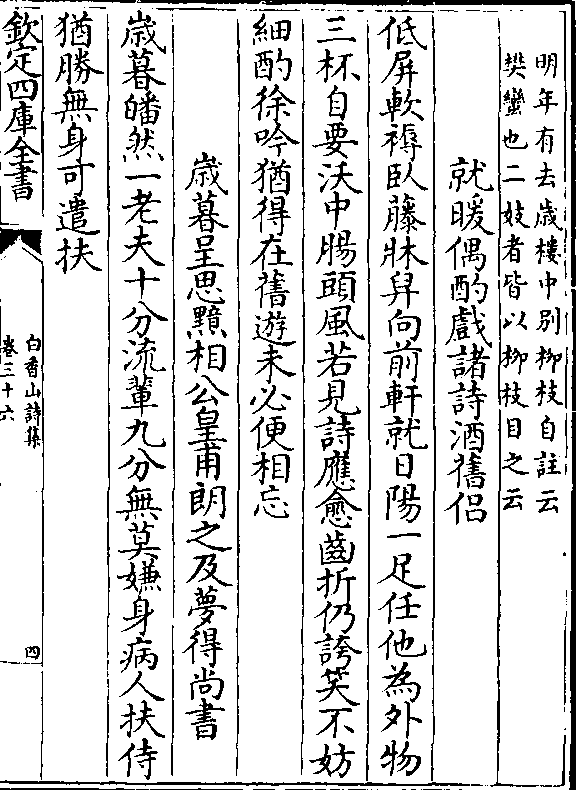 明年有去歲樓中别柳枝自註云
樊蠻也二妓者皆以柳枝目之云
就暖偶酌戲諸詩酒舊侣
低屏軟褥臥藤牀舁向前軒就日陽一足任他為外物
三杯自要沃中腸頭風若見詩應愈齒折仍誇笑不妨
細酌徐吟猶得在舊遊未必便相忘
歳暮呈思黯相公皇甫朗之及夢得尚書
歳暮皤然一老夫十分流輩九分無莫嫌身病人扶侍
猶勝無身可遣扶
欽定四庫全書
白香山詩集
卷三十六
四